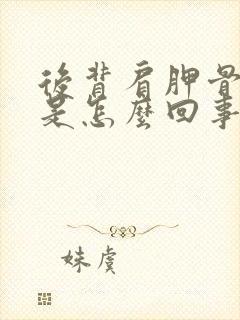 後背肩胛骨
是怎麼回事
妹虞